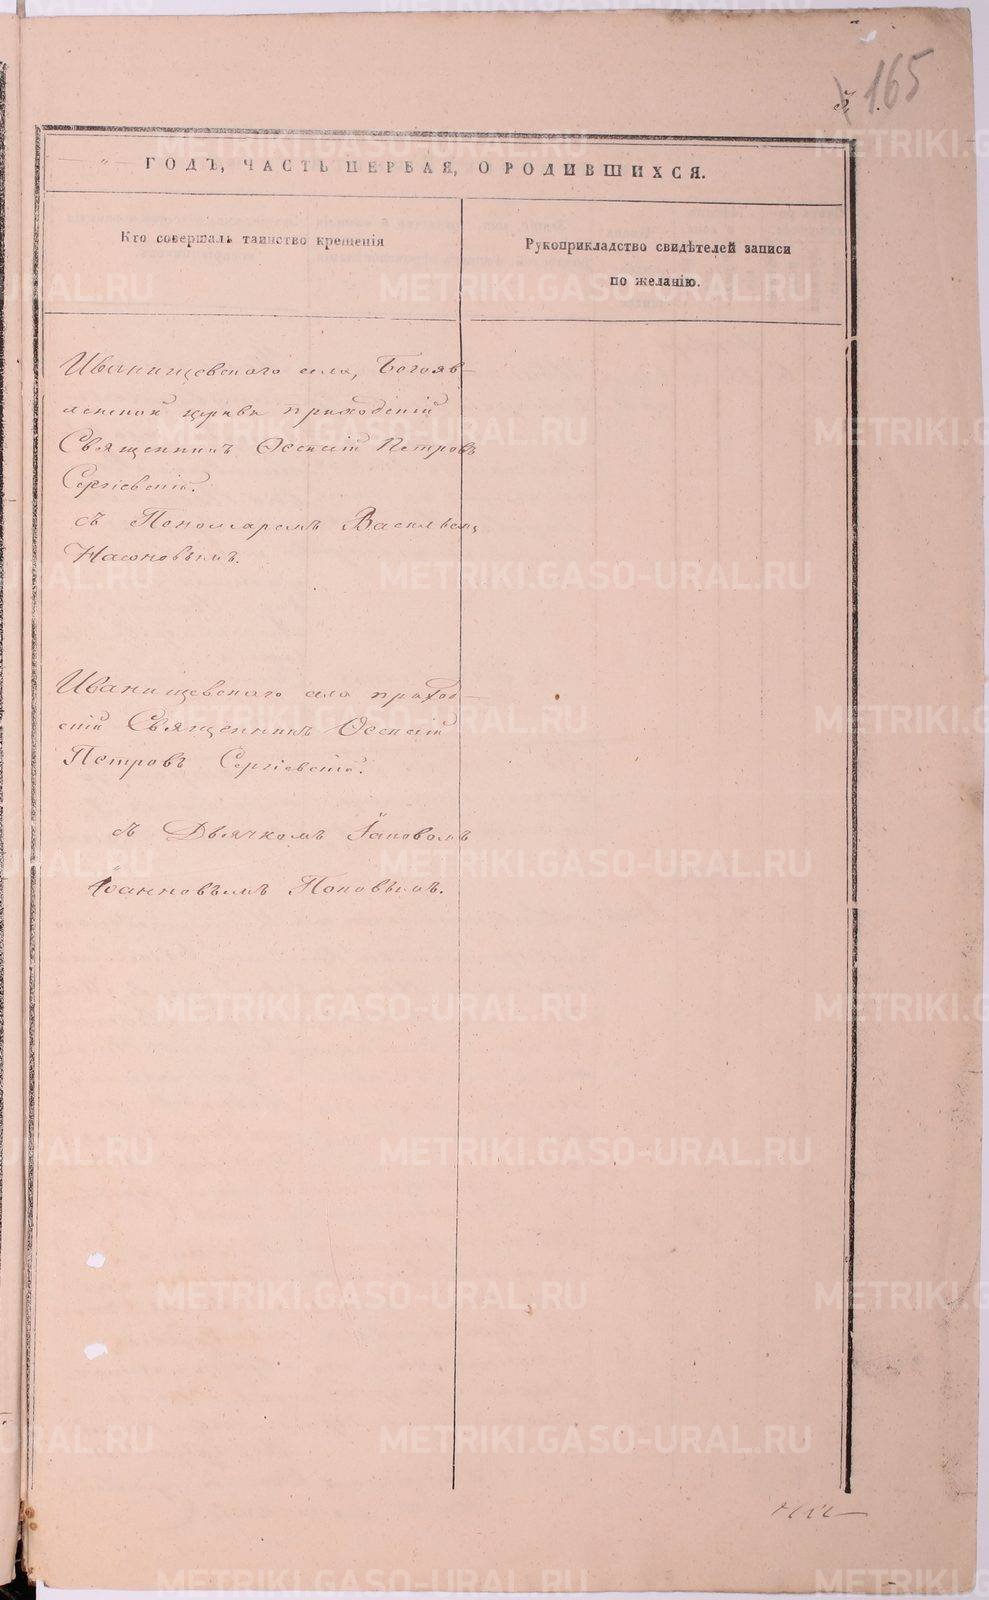 165
ГОДЪ, ЧАСТЬ ПЕРВАЯ, О РОДИВШИХСЯ.
Кто совершалъ таинство крещенія
Рукоприкладство свидѣтелей записи
по желанію.
Иванищевскаго села, Богояв-
ленской церкви приходскій
Священникъ Петровъ
Сергіевскій.
съ Пономаремъ Васильемъ
Насоновымъ.
Иванищевскаго села приход-
скій Священникъ
Петровъ Сергіевскій.
съ Дьячкомъ Іаковомъ
Іоанновымъ Поповымъ.
METRIKI.GASO-URAL.RU